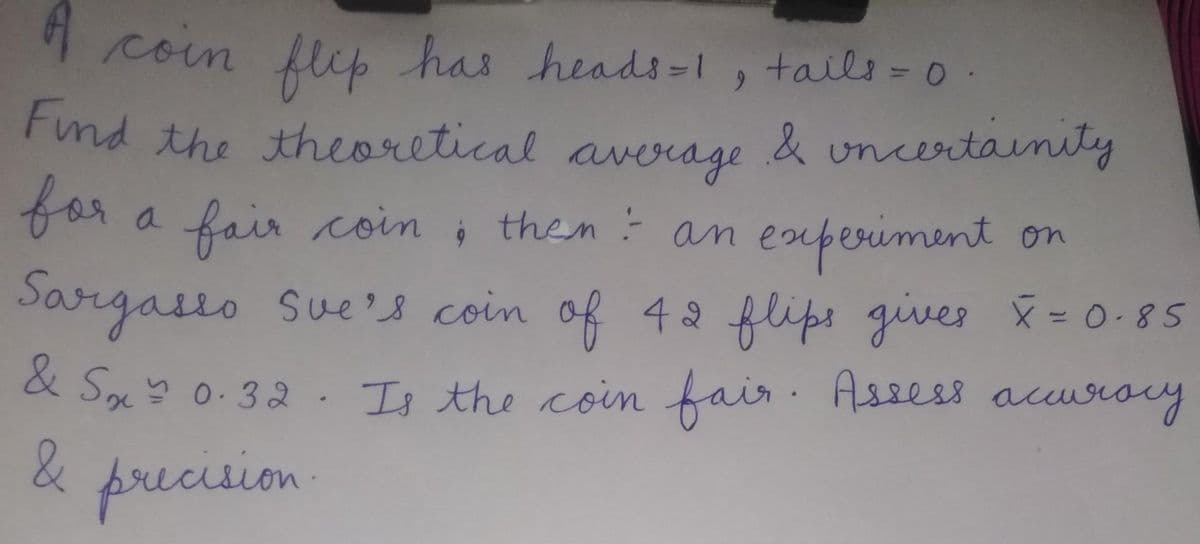 A coin flip has heads=1, tails = 0.
Find the theoretical average & uncertainity
for a fair coin; then :- an experiment on
Sargasso Sue's coin of 42 flips gives x̄ = 0.85
& Sx ≌ 0.32. Is the coin fair. Assess accuracy
& precision.